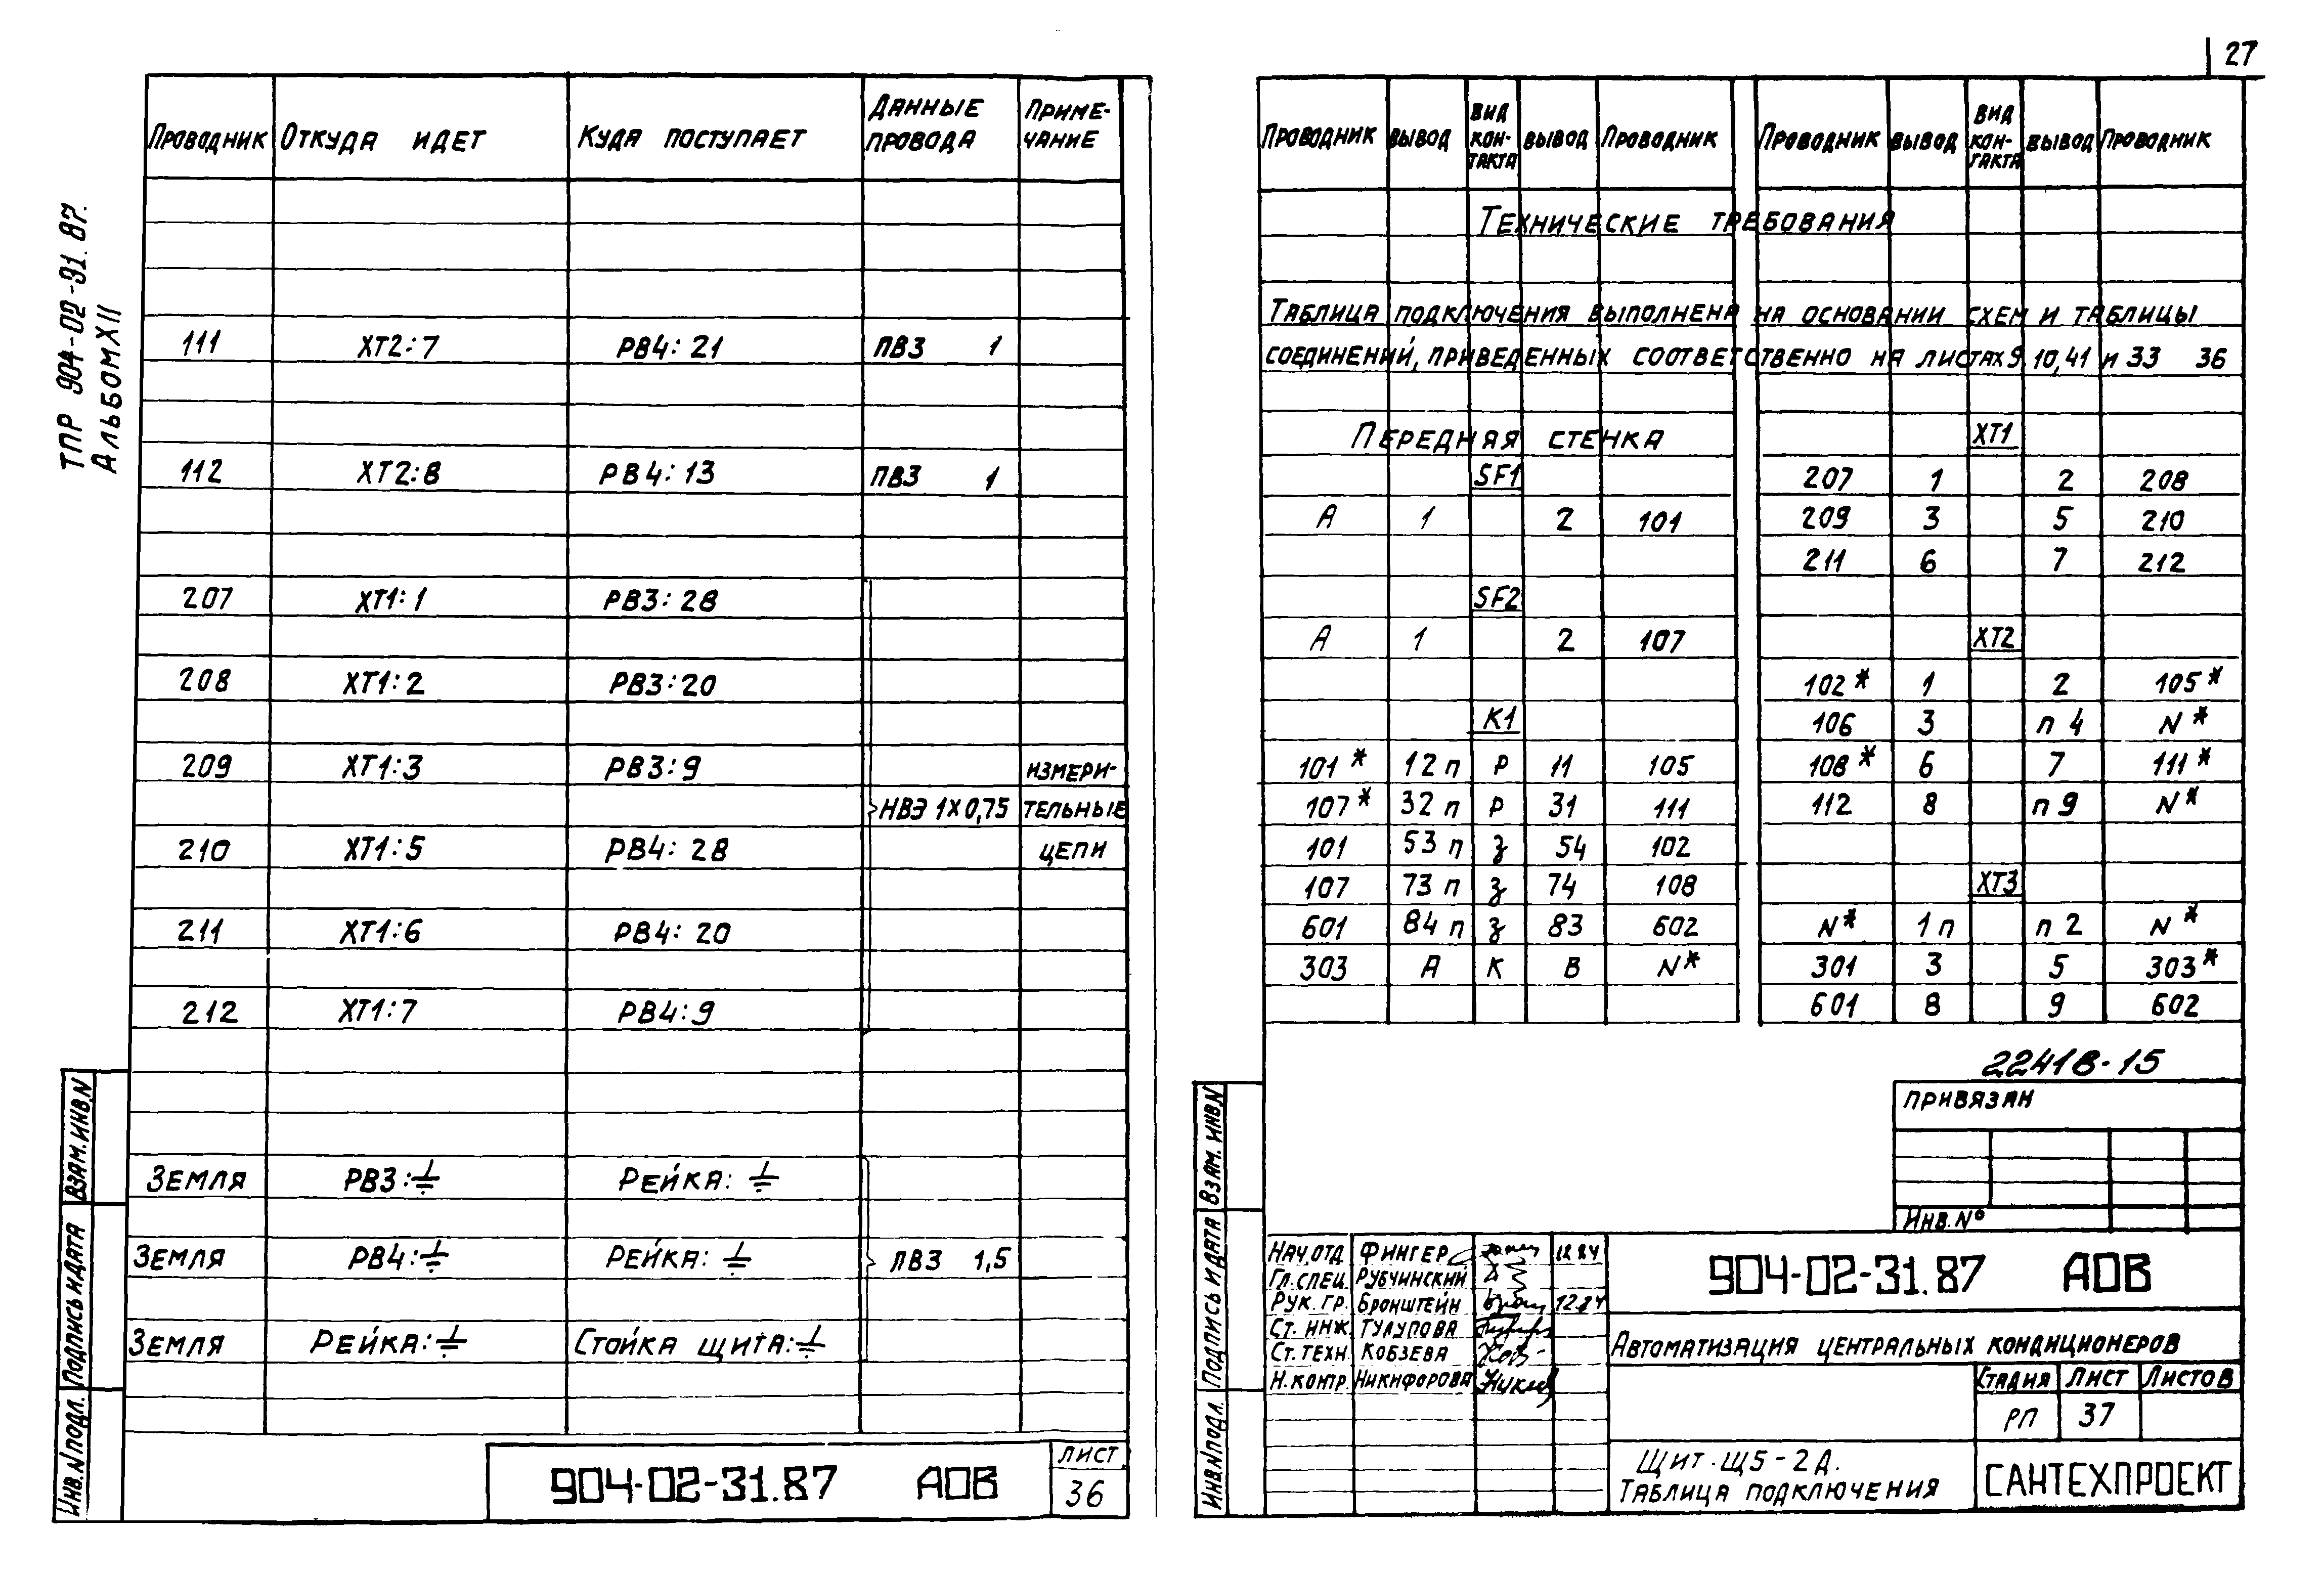 27
ТПР 904-02-31.87.
Альбом XII
Проводник Откуда идет Куда поступает Данные провода Приме-чание
111 XT2:7 PB4:21 ПВ3 1
112 XT2:8 PB4:13 ПВ3 1
207 XT1:1 PB3:28
208 XT1:2 PB3:20
209 XT1:3 PB3:9 измери-
НВЭ 1х0,75 тельные
210 XT1:5 PB4:28 цепи
211 XT1:6 PB4:20
212 XT1:7 PB4:9
Земля PB3:⏚ Рейка:⏚
Земля PB4:⏚ Рейка:⏚ ПВ3 1,5
Земля Рейка:⏚ Стойка щита:⏚
904-02-31.87 АОВ
лист
36
Взам. инв. N
Подпись и дата
Инв. N подл.
Проводник вывод вид кон-такта вывод Проводник
Проводник вывод вид кон-такта вывод Проводник
Технические требования
Таблица подключения выполнена на основании схем и таблицы
соединений, приведенных соответственно на листах 9, 10, 41 и 33 36
Передняя стенка
SF1
А 1 2 101
SF2
А 1 2 107
K1
101* 12 п Р 11 105
107* 32 п Р 31 111
101 53 п з 54 102
107 73 п з 74 108
601 84 п з 83 602
303 А К В N*
XT1
207 1 2 208
209 3 5 210
211 6 7 212
XT2
102* 1 2 105*
106 3 п 4 N*
108* 6 7 111*
112 8 п 9 N*
XT3
N* 1 п п 2 N*
301 3 5 303*
601 8 9 602
22418-15
Привязан
Инв. N°
Взам. инв. N
Подпись и дата
Инв. N подл.
Нач. отд. Фингер 12.84
Гл. спец. Рубчинский
Рук. гр. Бронштейн 12.84
Ст. инж. Тулупова
Ст. техн. Кобзева
Н. контр. Никифорова
904-02-31.87 АОВ
Автоматизация центральных кондиционеров
Стадия Лист Листов
РП 37
Щит Щ5-2Д.
Таблица подключения
САНТЕХПРОЕКТ